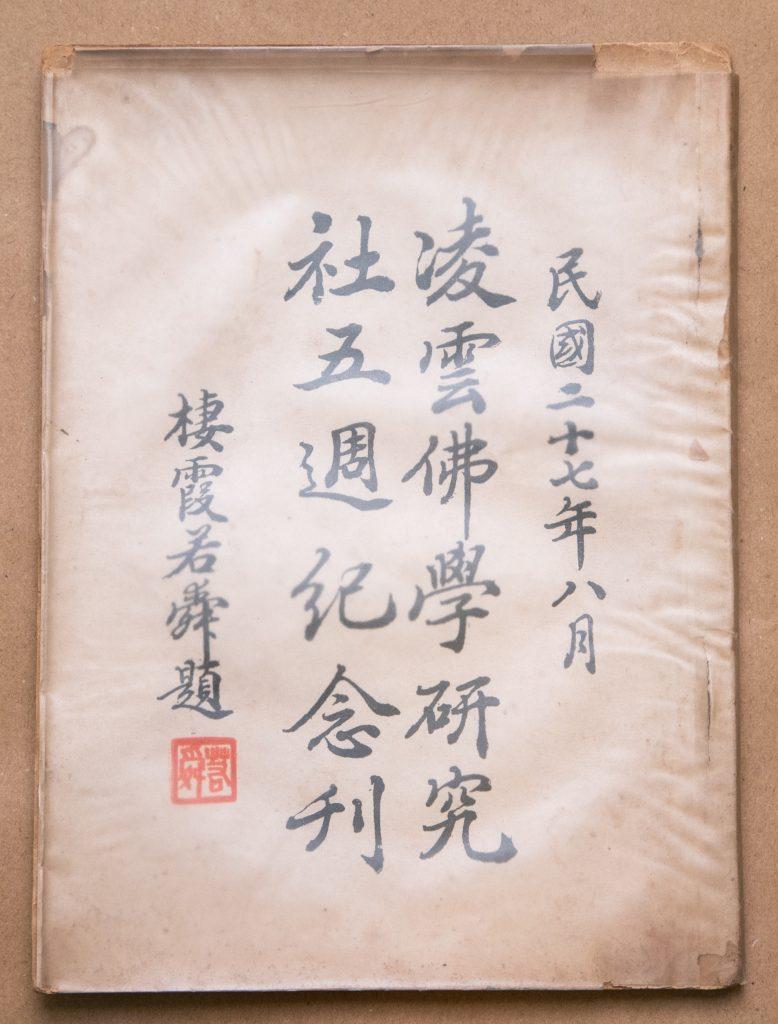 民國二十七年八月
凌雲佛學研究
社五週紀念刊
棲霞若舜題
若舜